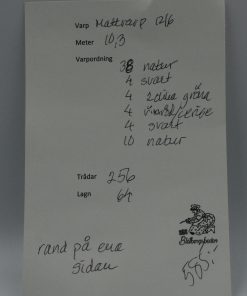 Varp Mattvarp 12/6
Meter 10,3
Varpordning
38 natur
4 svart
4 2 olika gröna
4
4 svart
10 natur
Trådar 256
Lagn 64
rand på ena
sidan